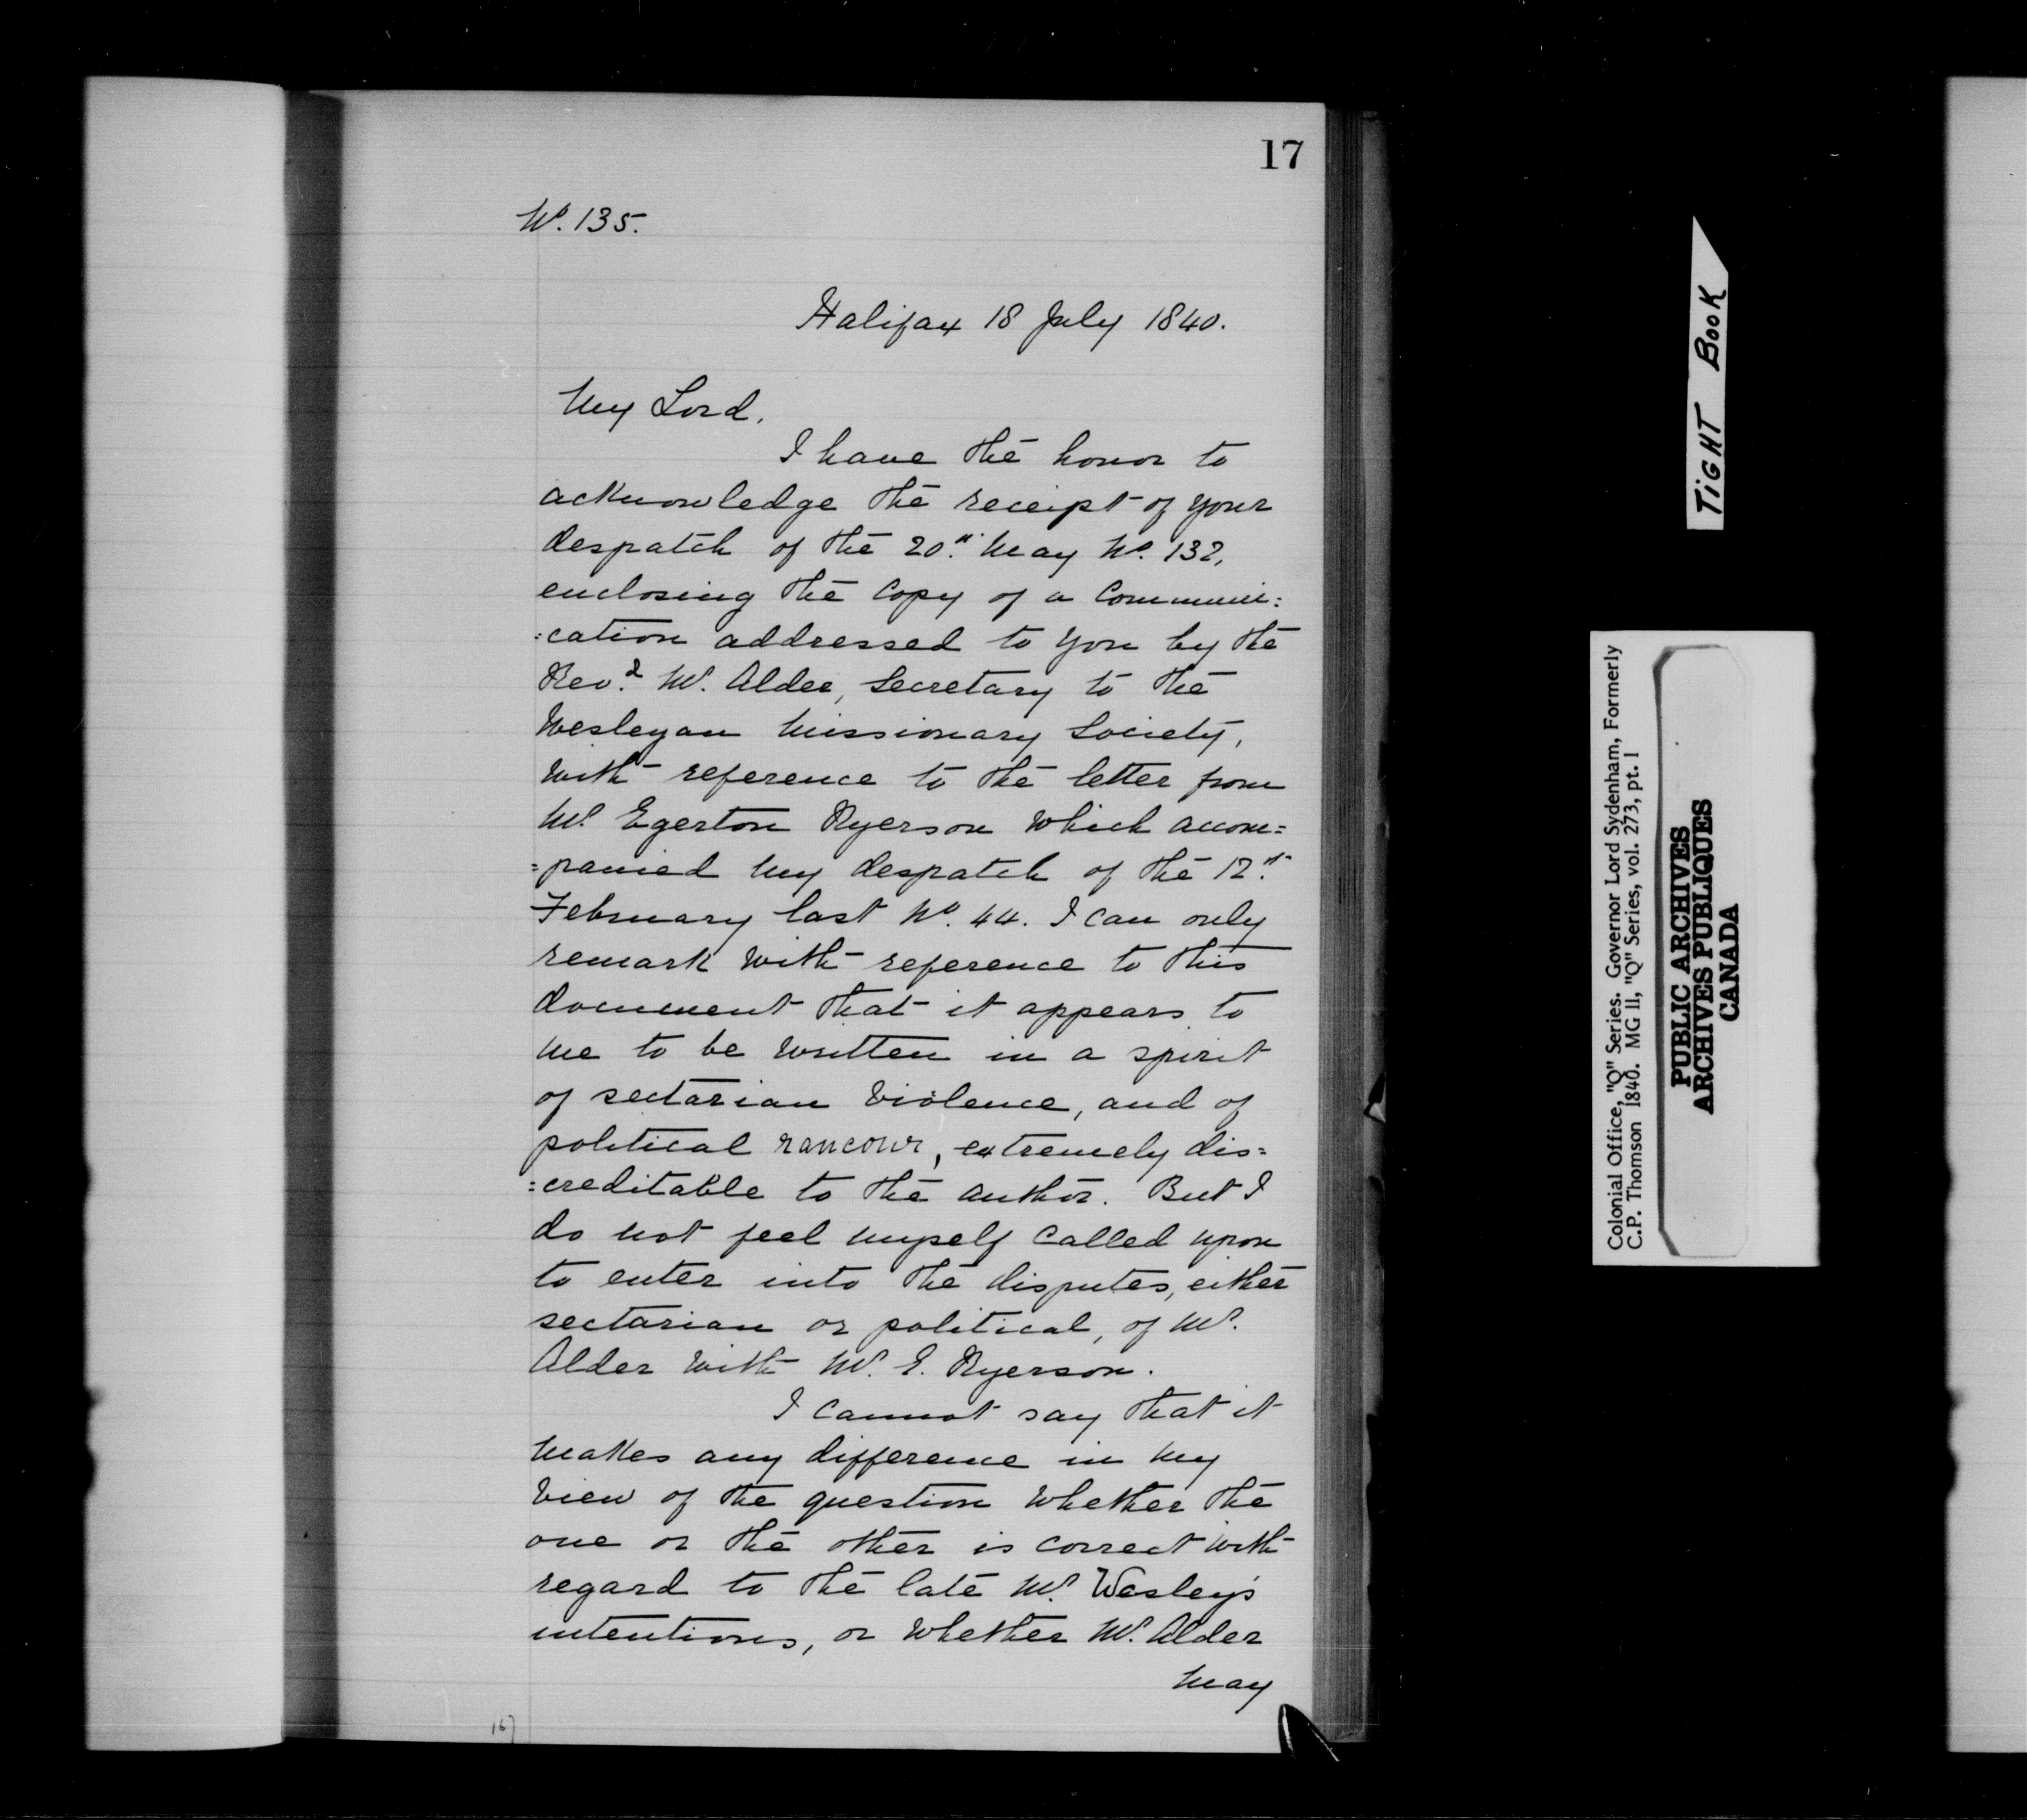 17
No. 135.
Halifax 18 July 1840.
My Lord,
I have the honor to
acknowledge the receipt of your
despatch of the 20th May No. 132,
enclosing the copy of a Communi=
=cation addressed to you by the
Revd Mr. Alder, Secretary to the
Wesleyan Missionary Society,
with reference to the letter from
Mr Egerton Ryerson which accom=
=panied my despatch of the 12th
February last No. 44. I can only
remark with reference to this
document that it appears to
me to be written in a spirit
of sectarian violence, and of
political rancour, extremely dis=
=creditable to the author. But I
do not feel myself called upon
to enter into the disputes, either
sectarian or political, of Mr.
Alder with Mr. E. Ryerson.
I cannot say that it
makes any difference in my
view of the question whether the
one or the other is correct with
regard to the late Mr. Wesley's
intentions, or whether Mr. Alder
may
167
TIGHT BOOK
Colonial Office, "Q" Series. Governor Lord Sydenham, Formerly
C.P. Thomson 1840. MG 11, "Q" Series, vol. 273, pt. 1
PUBLIC ARCHIVES
ARCHIVES PUBLIQUES
CANADA